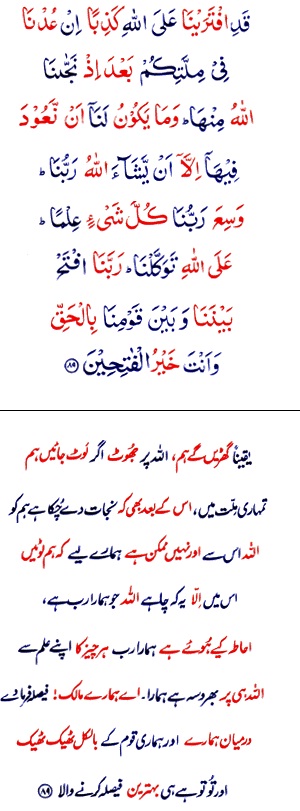 قَدِ افْتَرَيْنَا عَلَى اللهِ كَذِبًا اِنْ عُدْنَا
فِىْ مِلَّتِكُمْ بَعْدَ اِذْ نَجّٰىنَا
اللهُ مِنْهَا ؕ وَمَا يَكُوْنُ لَنَاۤ اَنْ نَّعُوْدَ
فِيْهَاۤ اِلَّاۤ اَنْ يَّشَآءَ اللهُ رَبُّنَا ؕ
وَسِعَ رَبُّنَا كُلَّ شَىْءٍ عِلْمًا ؕ
عَلَى اللهِ تَوَكَّلْنَا ؕ رَبَّنَا افْتَحْ
بَيْنَنَا وَ بَيْنَ قَوْمِنَا بِالْحَقِّ
وَاَنْتَ خَيْرُ الْفٰتِحِيْنَ ﴿۸۹﴾
یقیناً گھڑیں گے ہم، اللہ پر جھوٹ اگر لوٹ جائیں ہم
تمہاری ملّت میں، اس کے بعد بھی کہ نجات دے چُکا ہے ہم کو
اللہ اس سے اور نہیں ممکن ہے ہمارے لیے کہ ہم لوٹیں
اس میں اِلّا یہ کہ چاہے اللہ جو ہمارا رب ہے،
احاطہ کیے ہُوئے ہے ہمارا رب ہر چیز کا اپنے علم سے
اللہ ہی پر بھروسہ ہے ہمارا۔ اے ہمارے مالک! فیصلہ فرما دے
درمیان ہمارے اور ہماری قوم کے بالکل ٹھیک ٹھیک
اور تُو تو ہے ہی بہترین فیصلہ کرنے والا ﴿۸۹﴾